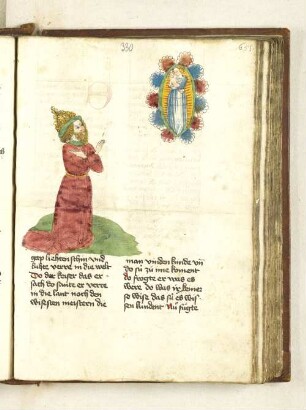 330
gap liehten schin und
luhte verre in die welt
Do der keiser das er-
sach do sante er verre
in die lant noch den
wisesten meistern die
man vinden kunde vn̄
do sü zü ime koment
do frogte er was es
were do was ir keiner
so wise das sü es wis-
sen kundent Nü fügte